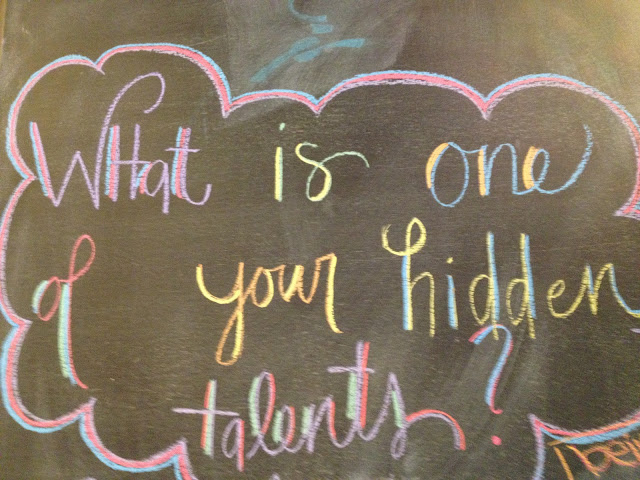 What is one
of your hidden
talents?